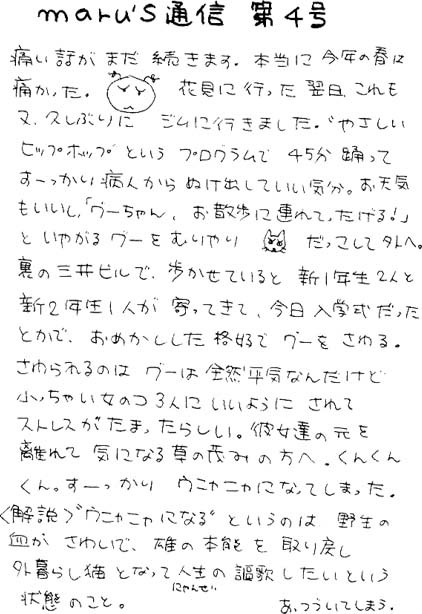 maru's通信 第4号
痛い話がまだ続きます。本当に今年の春は
痛かった。花見に行った翌日、これも
又、久しぶりにジムに行きました。“やさしい
ヒップホップ”というプログラムで45分踊って
すーっかり病人からぬけ出していい気分。お天気
もいいし、「グーちゃん、お散歩に連れてったげる!」
といやがるグーをむりやりだっこして外へ。
裏の三井ビルで、歩かせていると新1年生2人と
新2年生1人が寄ってきて、今日入学式だった
とかで、おめかしした格好でグーをさわる。
さわられるのはグーは全然平気なんだけど
小っちゃい女のコ3人にいいようにされて
ストレスがたまったらしい。彼女達の元を
離れて気になる草の茂みの方へ。くんくん
くん。すーっかりウニャニャになってしまった。
〈解説〉“ウニャニャになる”というのは野生の
血がさわいで、雄の本能を取り戻し
外暮らし猫となって人生の謳歌したいという
にゃんせい
状態のこと。あ、つづいてしまう。